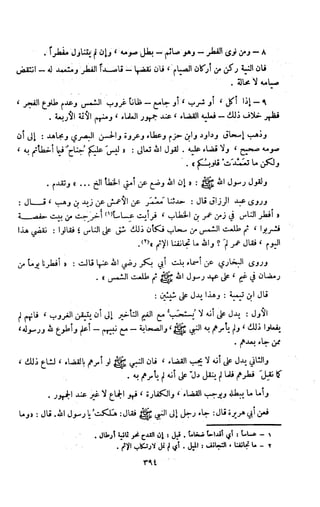 ٨ - ومن نوى الفطر - وهو صائم - بطل صومه ، وإن لم يتناول مفطراً .
فان النية ركن من أركان الصيام ، فان نقضها - قاصداً الفطر ومتعمداً له - انتقض
صيامه لا محالة .
٩ - إذا أكل ، أو شرب ، أو جامع - ظاناً غروب الشمس وعدم طلوع الفجر ،
فظهر خلاف ذلك - فعليه القضاء ، عند جمهور العلماء ، ومنهم الأئمة الأربعة .
وذهب إسحاق وداود وابن حزم وعطاء وعروة والحسن البصري ومجاهد : إلى أن
صومه صحيح ، ولا قضاء عليه . لقول الله تعالى : « ليس عليكم جناح فيما أخطأتم به ،
ولكن ما تعمدت قلوبكم » .
ولقول رسول الله ﷺ : « إن الله وضع عن أمتي الخطأ الخ ... » وتقدم .
وروى عبد الرزاق قال : حدثنا معمر عن الأعمش عن زيد بن وهب ، قال :
« أفطر الناس في زمن عمر بن الخطاب ، فرأيت عساساً (١) أخرجت من بيت حفصة
فشربوا ، ثم طلعت الشمس من سحاب فكأن ذلك شق على الناس ؛ فقالوا : نقضي هذا
اليوم ، فقال عمر لم ؟ والله ما تجانفنا الإثم » (٢) .
وروى البخاري عن أسماء بنت أبي بكر رضي الله عنها قالت : « أفطرنا يوماً من
رمضان في غيم ، على عهد رسول الله ﷺ ثم طلعت الشمس » .
قال ابن تيمية : وهذا يدل على شيئين :
الأول : يدل على أنه لا يستحب مع الغيم التأخير إلى أن يتيقن الغروب ، فانهم لم
يفعلوا ذلك ، ولم يأمرهم به النبي ﷺ والصحابة - مع نبيهم - أعلم وأطوع لله ورسوله ،
ممن جاء بعدهم .
والثاني يدل على أنه لا يجب القضاء ، فان النبي ﷺ لو أمرهم بالقضاء ، لشاع ذلك ،
كما نقل فطرهم فلما لم ينقل دل على أنه لم يأمرهم به .
وأما ما يبطله ويوجب القضاء ، والكفارة ، فهو الجماع لا غير عند الجمهور .
فعن أبي هريرة قال : جاء رجل إلى النبي ﷺ فقال : هلكت يا رسول الله . قال : « وما
١ - عساساً : أي أقداحاً ضخاماً . قيل : إن القدح نحو ثمانية أرطال .
٢ - ما تجانفنا ، التجانف : الميل . أي لم نمل لارتكاب الإثم .
٣٩٤